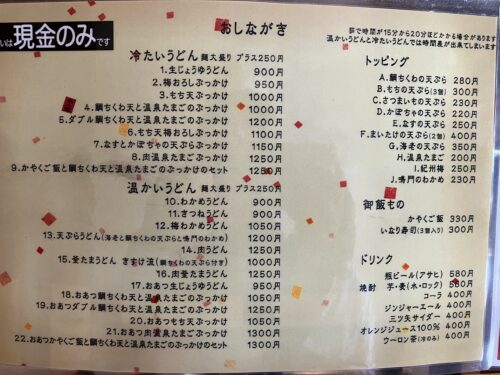 いは現金のみです
おしながき
茹で時間が15分から20分ほどかかる場合があります
温かいうどんと冷たいうどんでは時間差が出来てしまいます
冷たいうどん 麺大盛り プラス250円
1.生じょうゆうどん 900円
2.梅おろしぶっかけ 950円
3.もち天ぶっかけ 1000円
4.鯛ちくわ天と温泉たまごのぶっかけ 1000円
5.ダブル鯛ちくわ天と温泉たまごのぶっかけ 1250円
6.もち天梅おろしぶっかけ 1100円
7.なすとかぼちゃの天ぶらぶっかけ 1150円
8.肉温泉たまごぶっかけ 1250円
9.かやくご飯と鯛ちくわ天と温泉たまごのぶっかけのセット 1250円
温かいうどん 麺大盛り プラス250円
10.わかめうどん 900円
11.きつねうどん 900円
12.梅わかめうどん 1050円
13.天ぷらうどん(海老と鯛ちくわの天ぷらと鳴門のわかめ) 1200円
14.肉うどん 1250円
15.釜たまうどん きすけ流(鯛ちくわの天ぷら付き) 1000円
16.肉釜たまうどん 1250円
17.おあつ生じょうゆうどん 950円
18.おあつ鯛ちくわ天と温泉たまごのぶっかけ 1050円
19.おあつダブル鯛ちくわ天と温泉たまごのぶっかけ 1300円
20.おあつもち天ぶっかけ 1050円
21.おあつ肉温たまぶっかけ 1300円
22.おあつかやくご飯と鯛ちくわ天と温泉たまごのぶっかけのセット 1300円
トッピング
A.鯛ちくわの天ぷら 280円
B.もちの天ぷら(3個) 300円
C.さつまいもの天ぷら 230円
D.かぼちゃの天ぷら 220円
E.なすの天ぷら 250円
F.まいたけの天ぷら(2個) 400円
G.海老の天ぷら 350円
H.温泉たまご 200円
I.紀州梅 250円
J.鳴門のわかめ 230円
御飯もの
かやくご飯 330円
いなり寿司(3個入り) 300円
ドリンク
瓶ビール(アサヒ) 580円
焼酎 芋・麦(水・ロック) 580円
コーラ 400円
ジンジャーエール 400円
三ツ矢サイダー 400円
オレンジジュース100% 400円
ウーロン茶(冷のみ) 400円